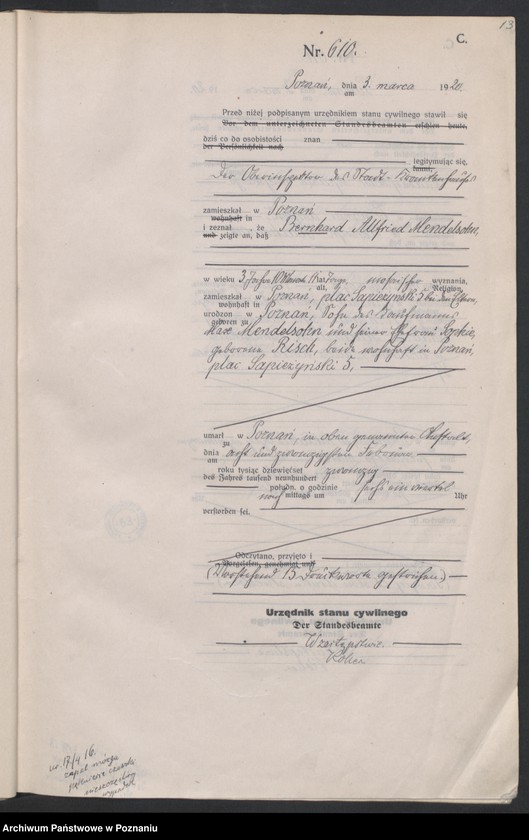 13
C.
Nr. 610.
Poznań, dnia 3. marca 1920
am
Przed niżej podpisanym urzędnikiem stanu cywilnego stawił się
Vor dem unterzeichneten Standesbeamten erschien heute,
dziś co do osobistości znan
der Persönlichkeit nach
legitymując się,
kannt,
Der Oberinspektor des Stadt-Krankenhauses
zamieszkał w Poznań
wohnhaft in
i zeznał, że Bernhard Allfried Mendelsohn,
und zeigte an, daß
w wieku 3 Jahre 10 Monate lat mosaischer wyznania,
alt, Religion,
zamieszkał w Poznań, plac Sapieżyński 5 bei den Eltern,
wohnhaft in
urodzon w Poznań, Sohn des Kaufmanns
geboren zu
Max Mendelsohn und seiner Ehefrau Sophie,
geborene Risch, beide wohnhaft in Poznań,
plac Sapieżyński 5,
umarł w Poznań, in oben genannter Anstalt,
zu
dnia acht und zwanzigsten Februar
am
roku tysiąc dziewięćset zwanzig
des Jahres tausend neunhundert
połudn. o godzinie sechs ein viertel
nach mittags um Uhr
verstorben sei.
Odczytano, przyjęto i
Vorgelesen, genehmigt und
(Vorstehend 13 Druckworte gestrichen.)
Urzędnik stanu cywilnego
Der Standesbeamte
W zastępstwie.
ur. 17/4 16.
Archiwum Państwowe w Poznaniu